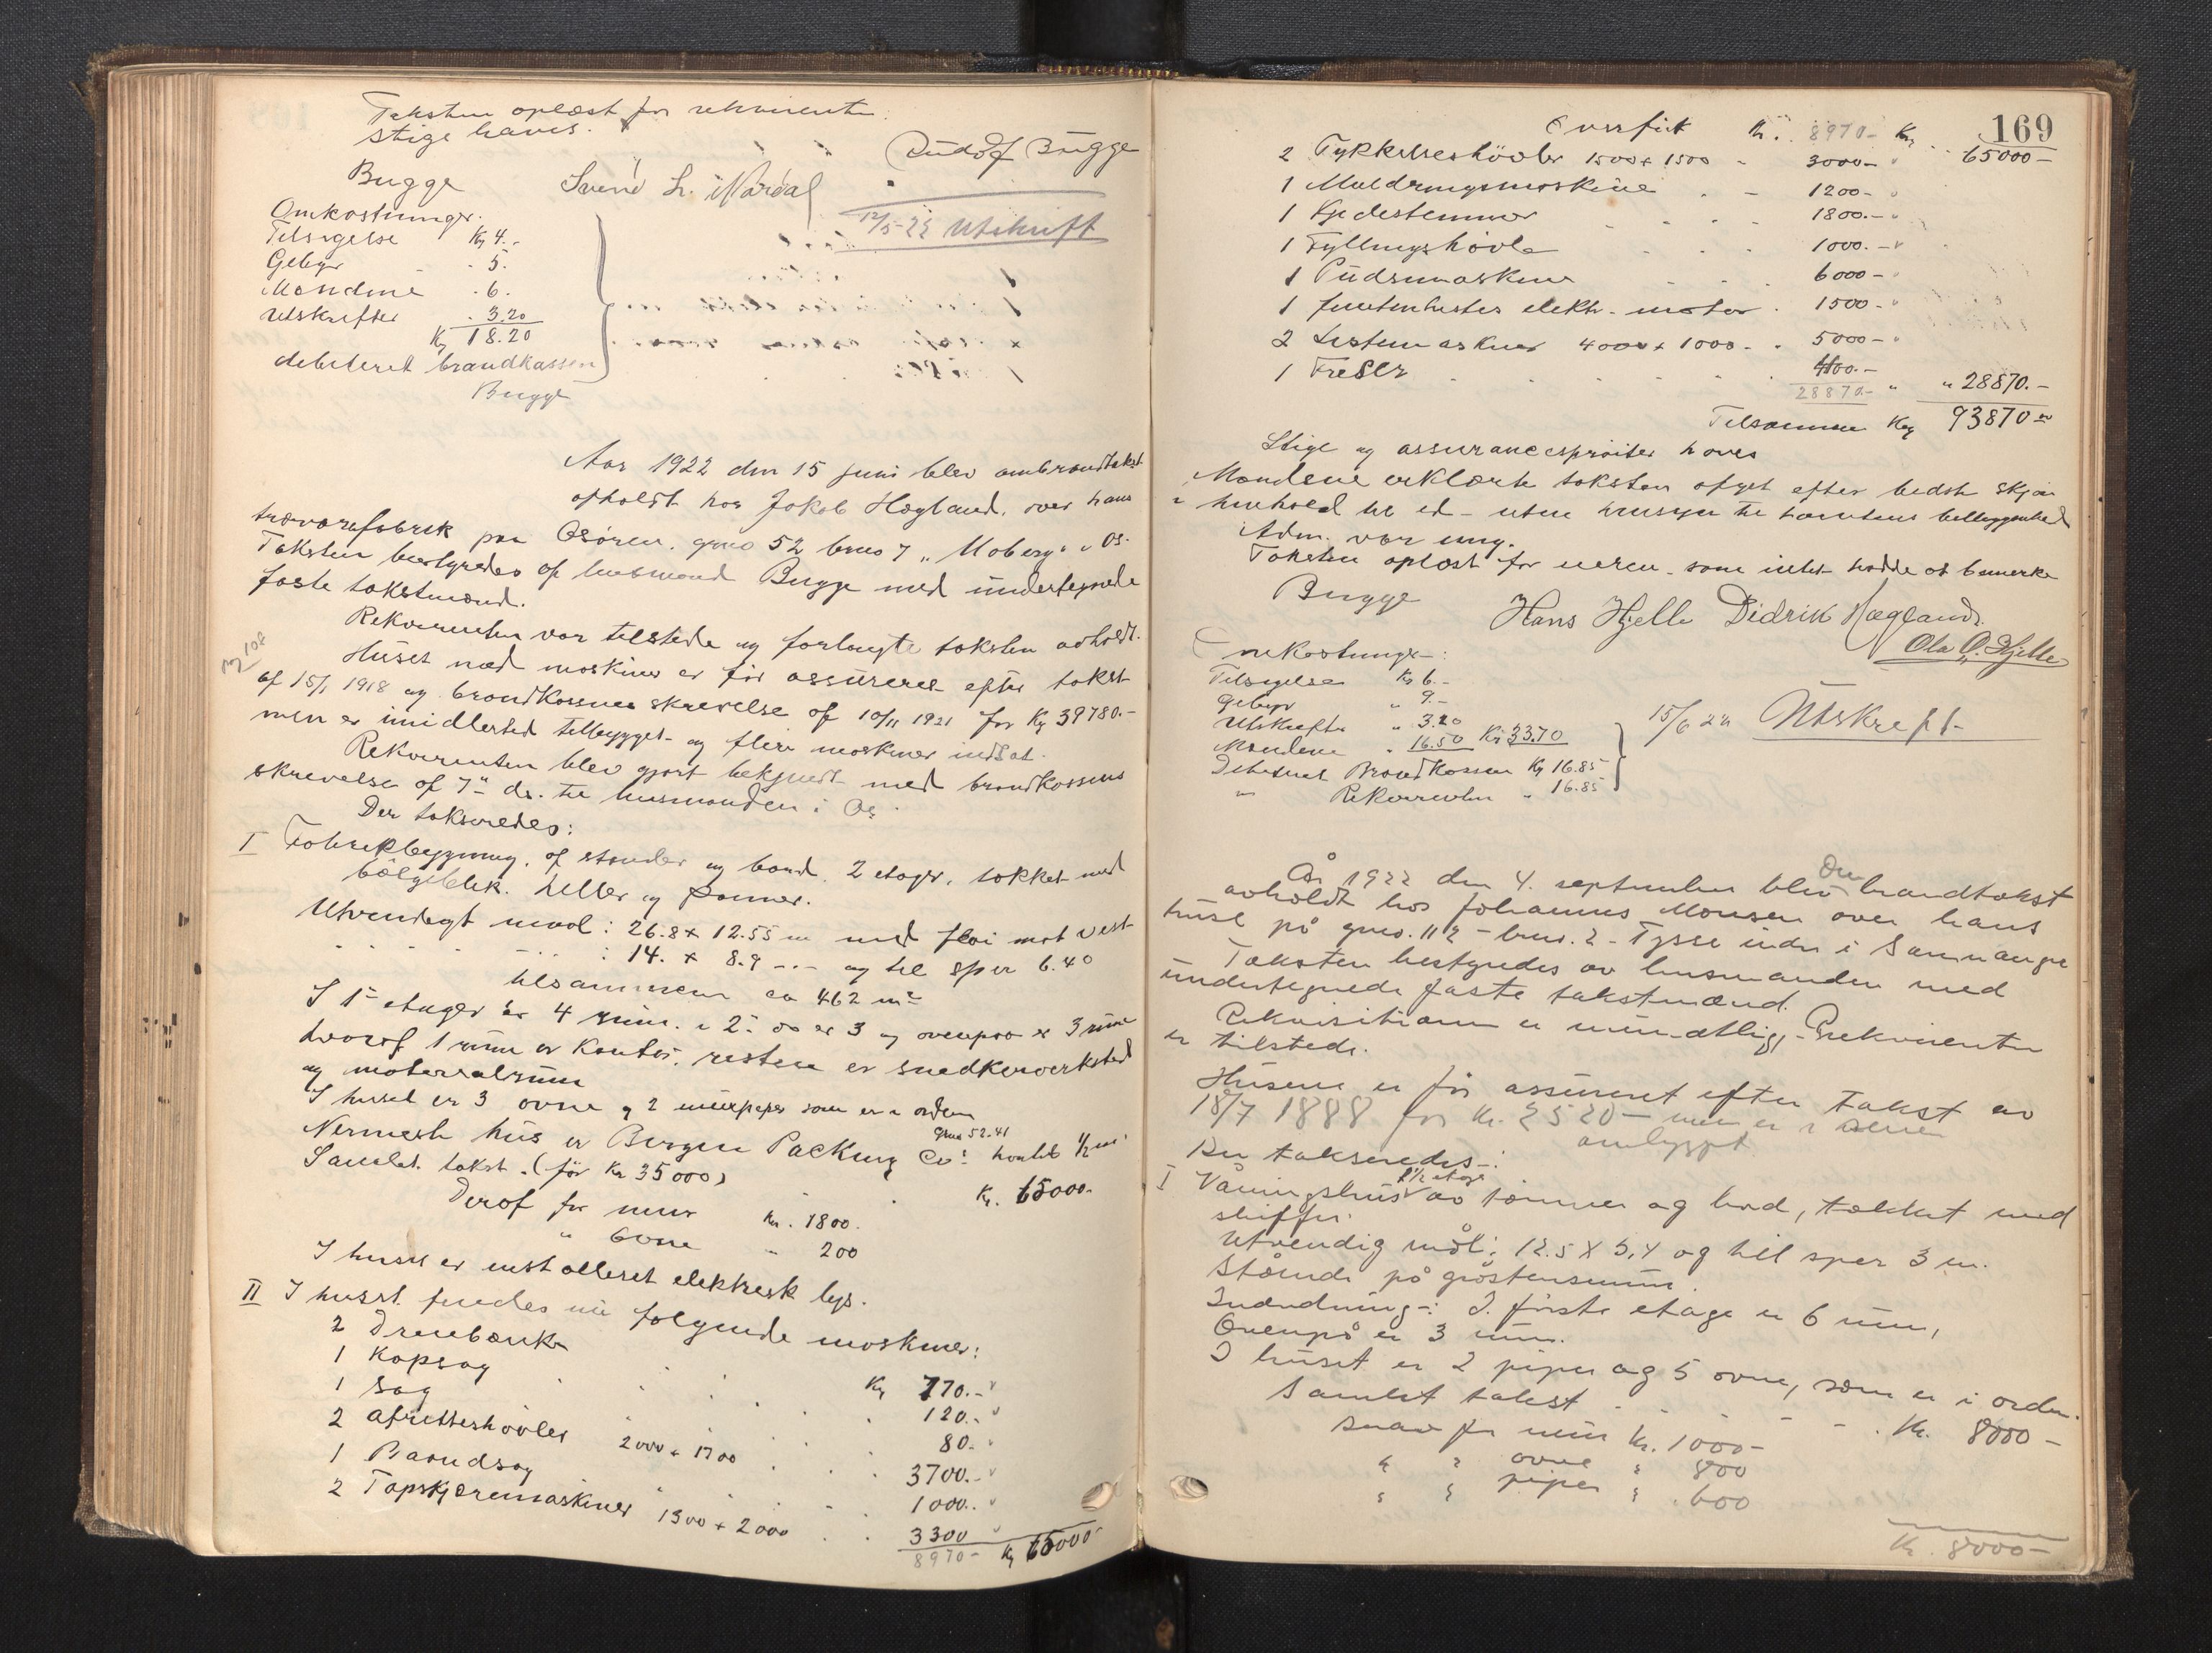 Taksten oplæst for rekvirenten.
Stige haves.
Rudolf Bugge
Bugge
Svend L. Nordal
Omkostninger.
Tilsigelse Kr 4.-
Gebyr - 5.
Mændene - 6.
Utskrifter - 3.20
Kr 18.20
debiteret brandkassen
Bugge
12/5-22 Utskrift
Aar 1922 den 15 juni blev ombrandtakst
afholdt hos Jakob Hægland, over hans
trævarefabrik paa Osøren, gno 52 bno 7 "Moberg" i Os.
Taksten bestyredes af lensmand Bugge med undertegnede
faste takstmænd.
Rekvirenten var tilstede og forlangte taksten avholdt.
Huset med maskiner er før assureret efter takst
af 15/1 1918 og brandkassens skrivelse af 10/11 1921 for Kr 39780.-
men er imidlertid tilbygget og flere maskiner indsat.
Rekvirenten blev gjort bekjendt med brandkassens
skrivelse af 7- ds. til lensmanden i Os.
Der takseredes:
I Fabrikbygning, af stender og bord, 2 etager, tækket med
bølgeblik, heller og panner.
Utvendigt maal: 26.8 x 12.55 m med fløi mot vest
- - - - - : 14. x 8.9 - - - og til sper 6.40
tilsammen ca 462 m²
I 1ste etage er 4 rum. i 2. do er 3 og ovenpaa er 3 rum
hvoraf 1 rum er kontor, resten er snedkerverksted
og materialrum
I huset er 3 ovne og 2 murpiper som er i orden
Nærmeste hus er Bergen Packing Co: gno 52.41
Samlet takst. (før Kr 35000) Kr. 65000.-
Derof for mur Kr. 1800.
" ovne " 200
I huset er installeret elektrisk lys.
II I huset findes nu følgende maskiner:
2 Dreiebænke Kr 770.-
1 Kapsag 120.-
1 Sag 80.-
2 Afretterhøvler 2000 + 1700 3700.-
1 Baandsag 1000.-
2 Tapskjæremaskiner 1300 + 2000 3300
8970- Kr 65000-
169
Overført Kr. 8970- Kr 65000-
2 Tykkelseshøvler 1500 + 1500 - 3000-
1 Muldringsmaskine - 1200-
1 Kjedestemmer 1800.-
1 Fyllingshøvle 1000.-
1 Pudsemaskine 6000-
1 femtenhestes elektr. motor 1500-
2 Listemaskiner 4000 + 1000- 5000-
1 Freser 400.-
28870.- " 28870.-
Tilsammen Kr 93870.00
Stige og assurancesprøiter haves
Mændene erklærte taksten afgit efter bedste skjøn
i henhold til ed - uten hensyn til tomtens beliggenhed
Adm. var enig.
Taksten oplæst for eieren - som intet hadde at bemerke
Bugge
Hans Hjelle Didrik Hægland.
Ola O. Hjelle
Omkostninger:
Tilsigelse Kr 6.-
Gebyr " 9.-
Utskrifter " 3.20
Mændene " 16.50 Kr 33.70
Debiteret Brandkassen Kr 16.85
" Rekvirenten " 16.85
15/6 22 Utskrift
År 1922 den 4. september blev brandtakst
avholdt hos Johannes Monsen over hans
huse på gno. 112 - bno. 2 - Tysse indre i Samnanger
Taksten bestyredes av lensmanden med
undertegnede faste takstmænd.
Rekvisitionen er mundtlig. - Rekvirenten
er tilstede.
Husene er før assureret efter takst av
18/7 1888 for Kr. 2520 - men er i
ombygget
Der takseredes:
I Våningshus 1 1/2 etage av tømmer og bord, tækket med
skiffer.
Utvendig mål: 12.5 X 5,4 og til sper 3 m.
Stående på gråstensmur.
Indredning: I første etage er 6 rum,
Ovenpå er 3 rum.
I huset er 2 piper og 5 ovne, som er i orden.
Samlet takst . . . . Kr. 8000-
Herav for mur Kr. 1000-
" " ovne " 800
" " piper " 600
Kr. 8000-